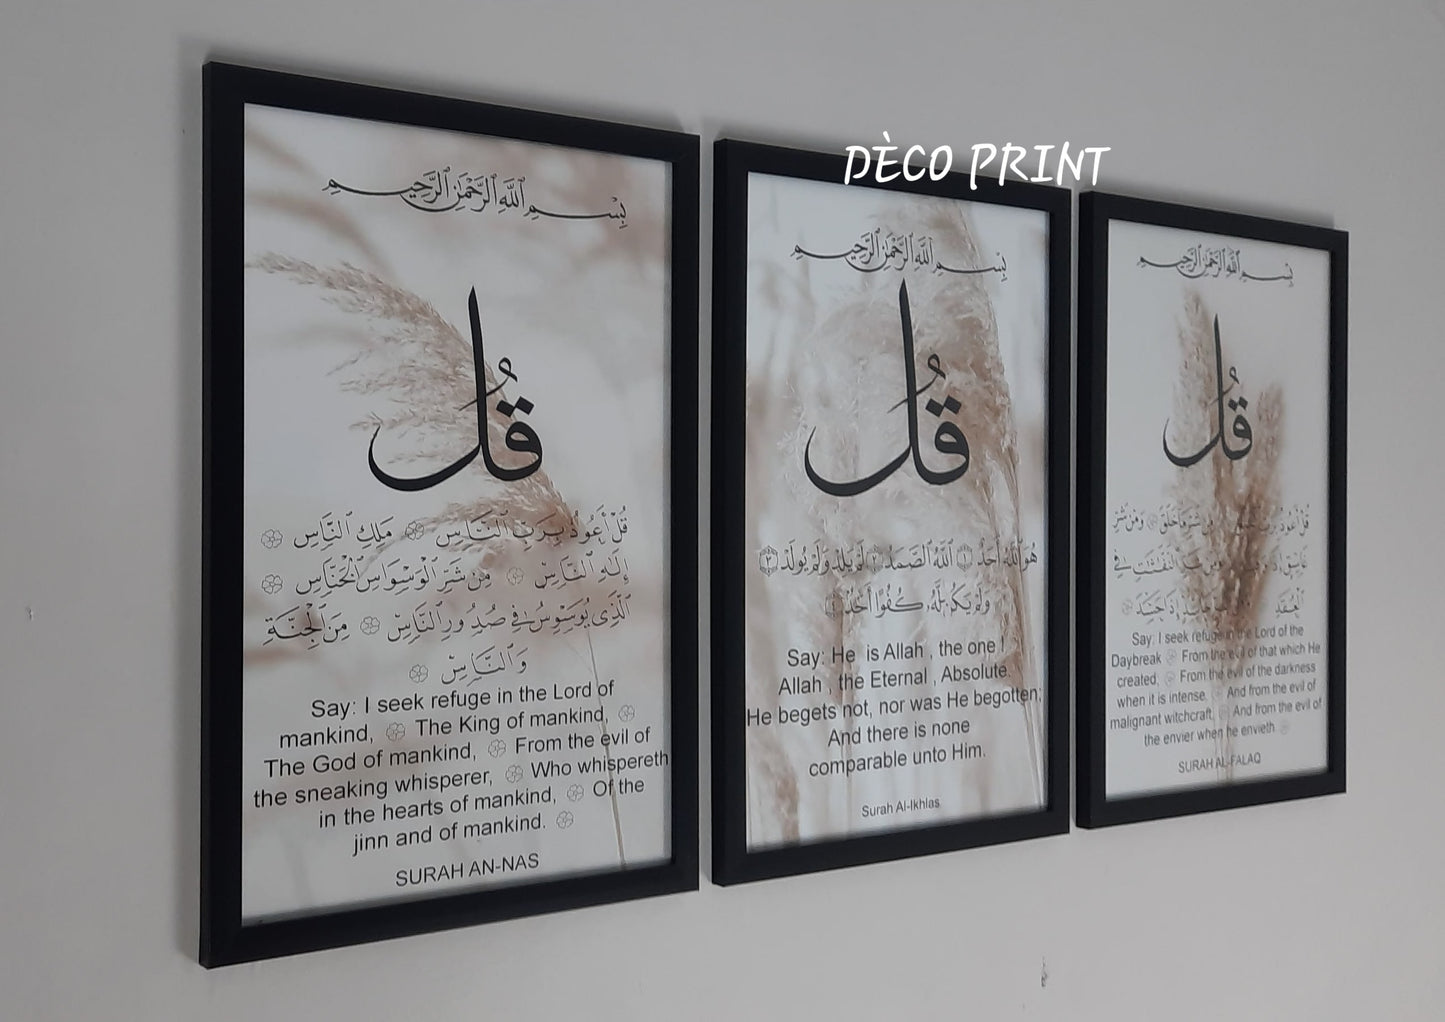 DÈCO PRINT
بِسْمِ ٱللَّهِ ٱلرَّحْمَٰنِ ٱلرَّحِيمِ
قُل
قُلْ أَعُوذُ بِرَبِّ ٱلنَّاسِ ۝ مَلِكِ ٱلنَّاسِ ۝
إِلَٰهِ ٱلنَّاسِ ۝ مِن شَرِّ ٱلْوَسْوَاسِ ٱلْخَنَّاسِ ۝
ٱلَّذِى يُوَسْوِسُ فِى صُدُورِ ٱلنَّاسِ ۝ مِنَ ٱلْجِنَّةِ
وَٱلنَّاسِ ۝
Say: I seek refuge in the Lord of
mankind, ۝ The King of mankind, ۝
The God of mankind, ۝ From the evil of
the sneaking whisperer, ۝ Who whispereth
in the hearts of mankind, ۝ Of the
jinn and of mankind. ۝
SURAH AN-NAS
بِسْمِ ٱللَّهِ ٱلرَّحْمَٰنِ ٱلرَّحِيمِ
قُل
هُوَ ٱللَّهُ أَحَدٌ ١ ٱللَّهُ ٱلصَّمَدُ ٢ لَمْ يَلِدْ وَلَمْ يُولَدْ ٣
وَلَمْ يَكُن لَّهُۥ كُفُوًا أَحَدٌۢ ٤
Say: He is Allah , the one !
Allah , the Eternal , Absolute.
He begets not, nor was He begotten;
And there is none
comparable unto Him.
Surah Al-Ikhlas
بِسْمِ ٱللَّهِ ٱلرَّحْمَٰنِ ٱلرَّحِيمِ
قُل
قُلْ أَعُوذُ بِرَبِّ مِن شَرِّ مَا خَلَقَ ۝ وَمِن شَرِّ
غَاسِقٍ إِذَا ٱلنَّفَّٰثَٰتِ فِى
ٱلْعُقَدِ حَاسِدٍ إِذَا حَسَدَ ۝
Say: I seek refuge in the Lord of the
Daybreak ۝ From the evil of that which He
created; ۝ From the evil of the darkness
when it is intense. ۝ And from the evil of
malignant witchcraft, ۝ And from the evil of
the envier when he envieth. ۝
SURAH AL-FALAQ